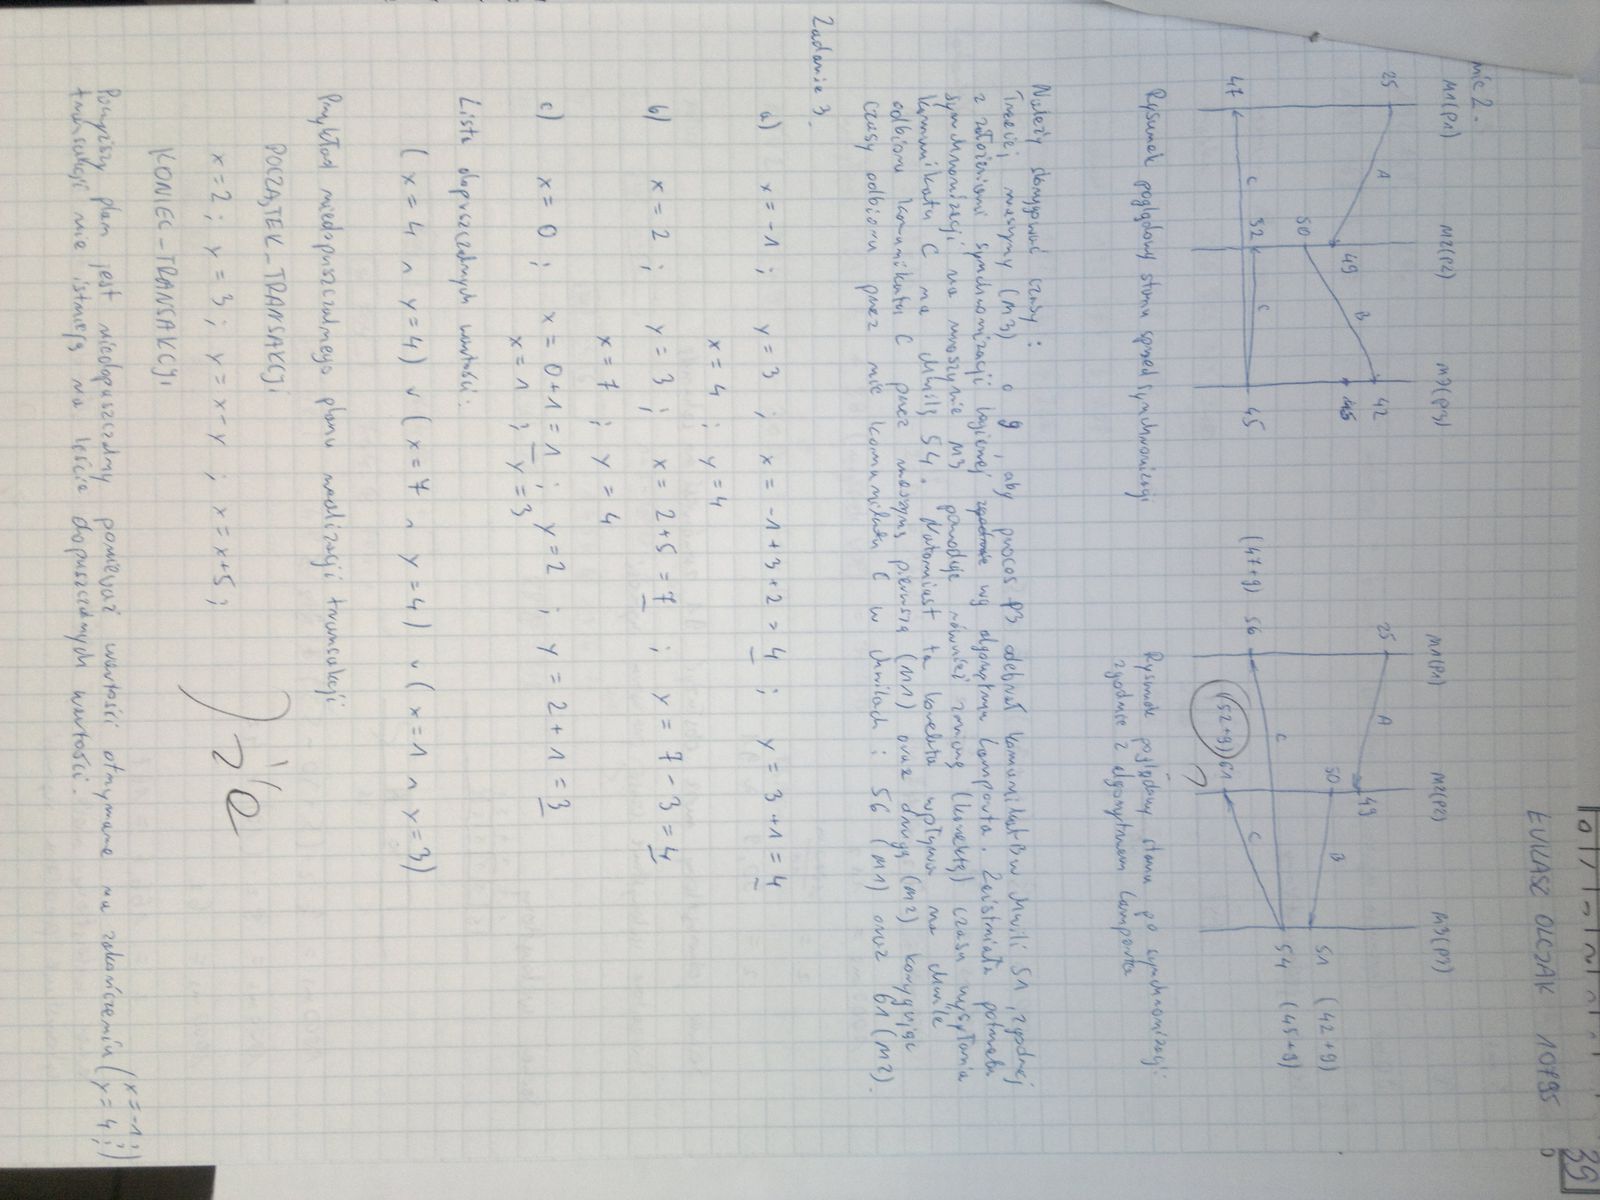 39
EUKASZ OLCZAK 10795
nie 2.
M1(P1) M2(P2) M3(P3)
25 A 49 42
50 B 45
47 C 52 C 45
Rysunek poglądowy stanu sprzed synchronizacji
M1(P1) M2(P2) M3(P3)
25 A 49
50 B 51 (42+9)
(47+9) 56 C (52+9) 61 C 54 (45+9)
Rysunek poglądowy stanu po synchronizacji
zgodnie z algorytmem Lamporta
Należy skorygować czasy:
Trzeciej maszyny (M3) o 9, aby proces P3 odebrał komunikat B w chwili 51, zgodnej
z założeniami synchronizacji logicznej wg algorytmu Lamporta. Zaistniała potrzeba
synchronizacji na maszynie M3 powoduje również zmianę (korektę) czasu wysłania
komunikatu C na chwilę 54. Natomiast ta korekta wpływa na chwile
odbioru komunikatu C przez maszynę pierwszą (M1) oraz drugą (M2) korygując
czasy odbioru przez nie komunikatu C w chwilach: 56 (M1) oraz 61 (M2).
Zadanie 3.
a) x=-1; y=3; x=-1+3+2=4; y=3+1=4
x=4; y=4
b) x=2; y=3; x=2+5=7; y=7-3=4
x=7; y=4
c) x=0; x=0+1=1; y=2; y=2+1=3
x=1; y=3
Lista dopuszczalnych wartości:
(x=4 ∧ y=4) ∨ (x=7 ∧ y=4) ∨ (x=1 ∧ y=3)
Przykład niedopuszczalnego planu realizacji transakcji:
POCZĄTEK-TRANSAKCJI
x=2; y=3; y=x-y; x=x+5;
KONIEC-TRANSAKCJI
Powyższy plan jest niedopuszczalny ponieważ wartości otrzymane na zakończeniu (x=-1; y=4;)
transakcji nie istnieją na liście dopuszczalnych wartości.